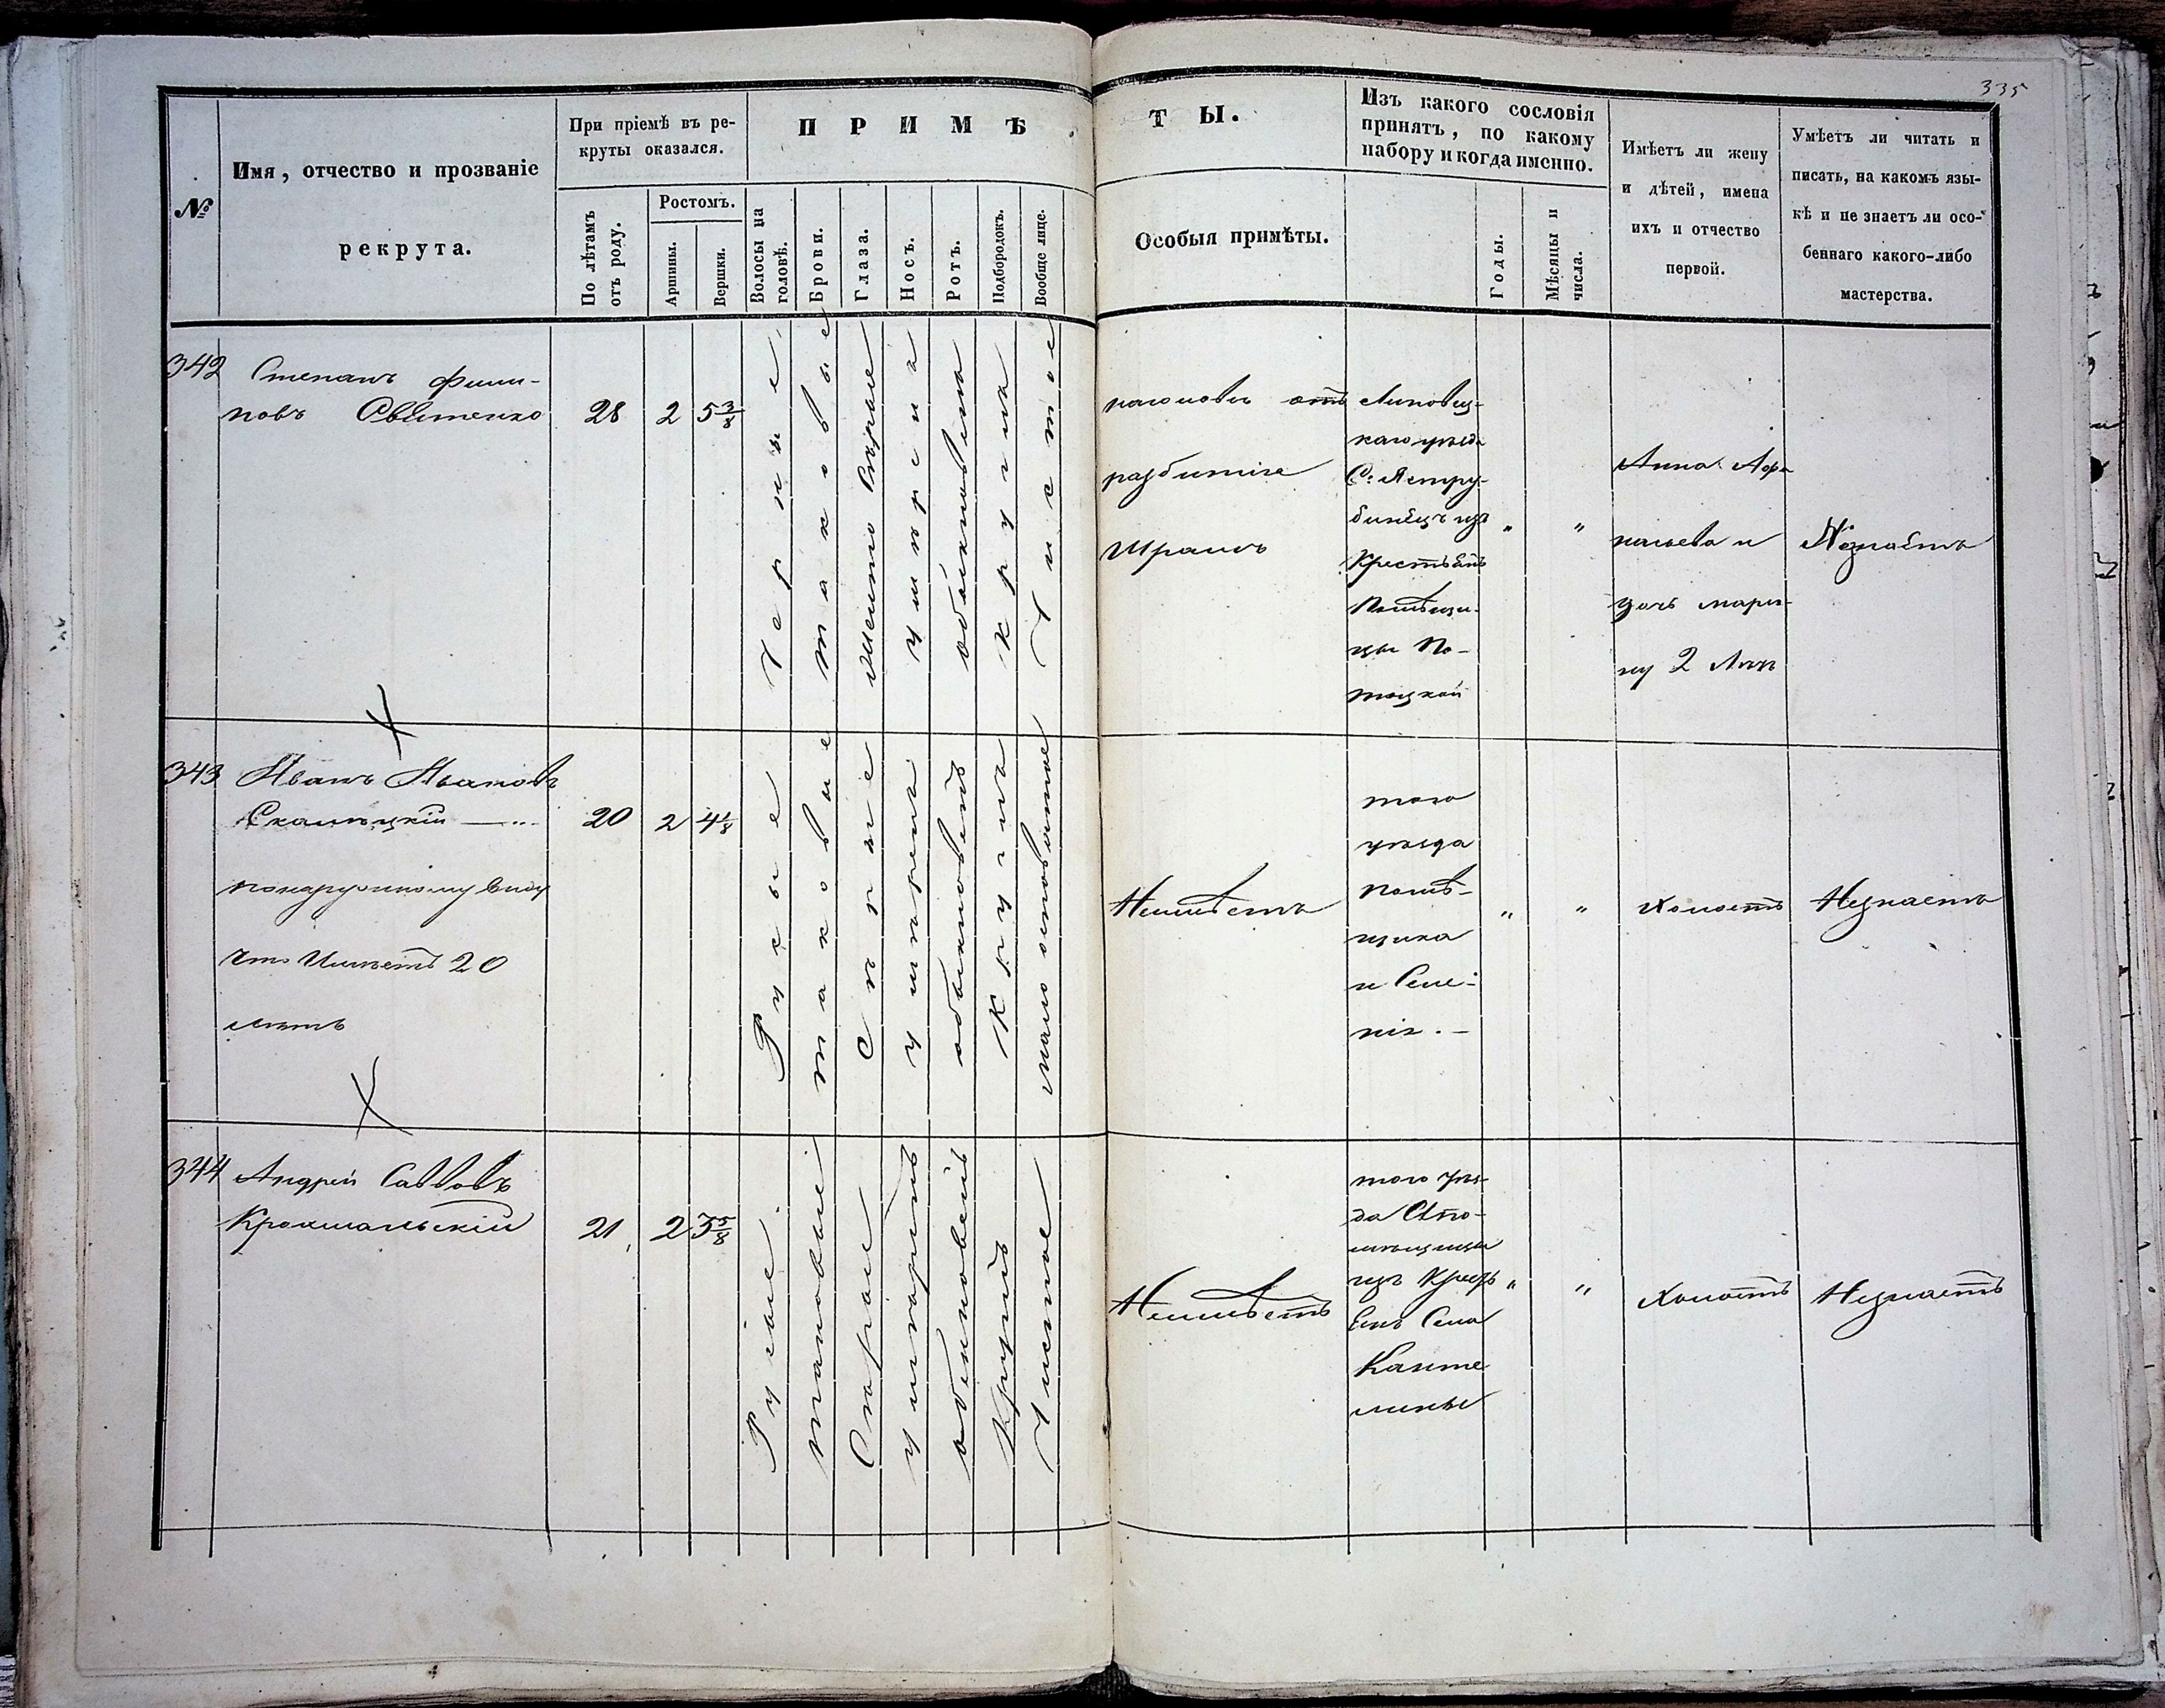 335
№
Имя, отчество и прозваніе
рекрута.
При пріемѣ въ ре-
круты оказался.
По лѣтамъ
отъ роду.
Ростомъ.
Аршины.
Вершки.
ПРИМѢ
Волосы на
головѣ.
Брови.
Глаза.
Носъ.
Ротъ.
Подбородокъ.
Вообще лице.
ТЫ.
Особыя примѣты.
Изъ какого сословія
принятъ, по какому
набору и когда именно.
Годы.
Мѣсяцы и
числа.
Имѣетъ ли жену
и дѣтей, имена
ихъ и отчество
первой.
Умѣетъ ли читать и
писать, на какомъ язы-
кѣ и не знаетъ ли осо-
беннаго какого-либо
мастерства.
342
Степанъ Фили-
повъ
28
2
5 3/8
Черные
таковые
Сѣрые
умѣренъ
обыкновенъ
Круглъ
Чистое
отъ
разбитія
Шрамъ
Липовец-
каго уѣзда
С. Яструбинецъ изъ
Крестьянъ
Помѣщи-
цы По-
тоцкой
"
"
Анна
и
дочь мари-
ну 2 Лѣтъ
Незнаетъ
343
Иванъ Ивановъ
20
2
4 1/8
понаружному виду
что Имѣетъ 20
лѣтъ
Русые
таковые
Сѣрые
умѣренъ
обыкновенъ
Круглъ
мало осповатое
Неимѣетъ
того
уѣзда
помѣ-
щика
и Селе-
нія. —
"
"
Холостъ
Незнаетъ
344
Андрей Савовъ
Крохмальскій
21
2
3 5/8
Русые
таковые
Сѣрые
умѣренъ
обыкновенъ
Круглъ
Чистое
Неимѣетъ
того уѣз-
да
изъ
Села
Канте
лины
"
"
Холостъ
Незнаетъ